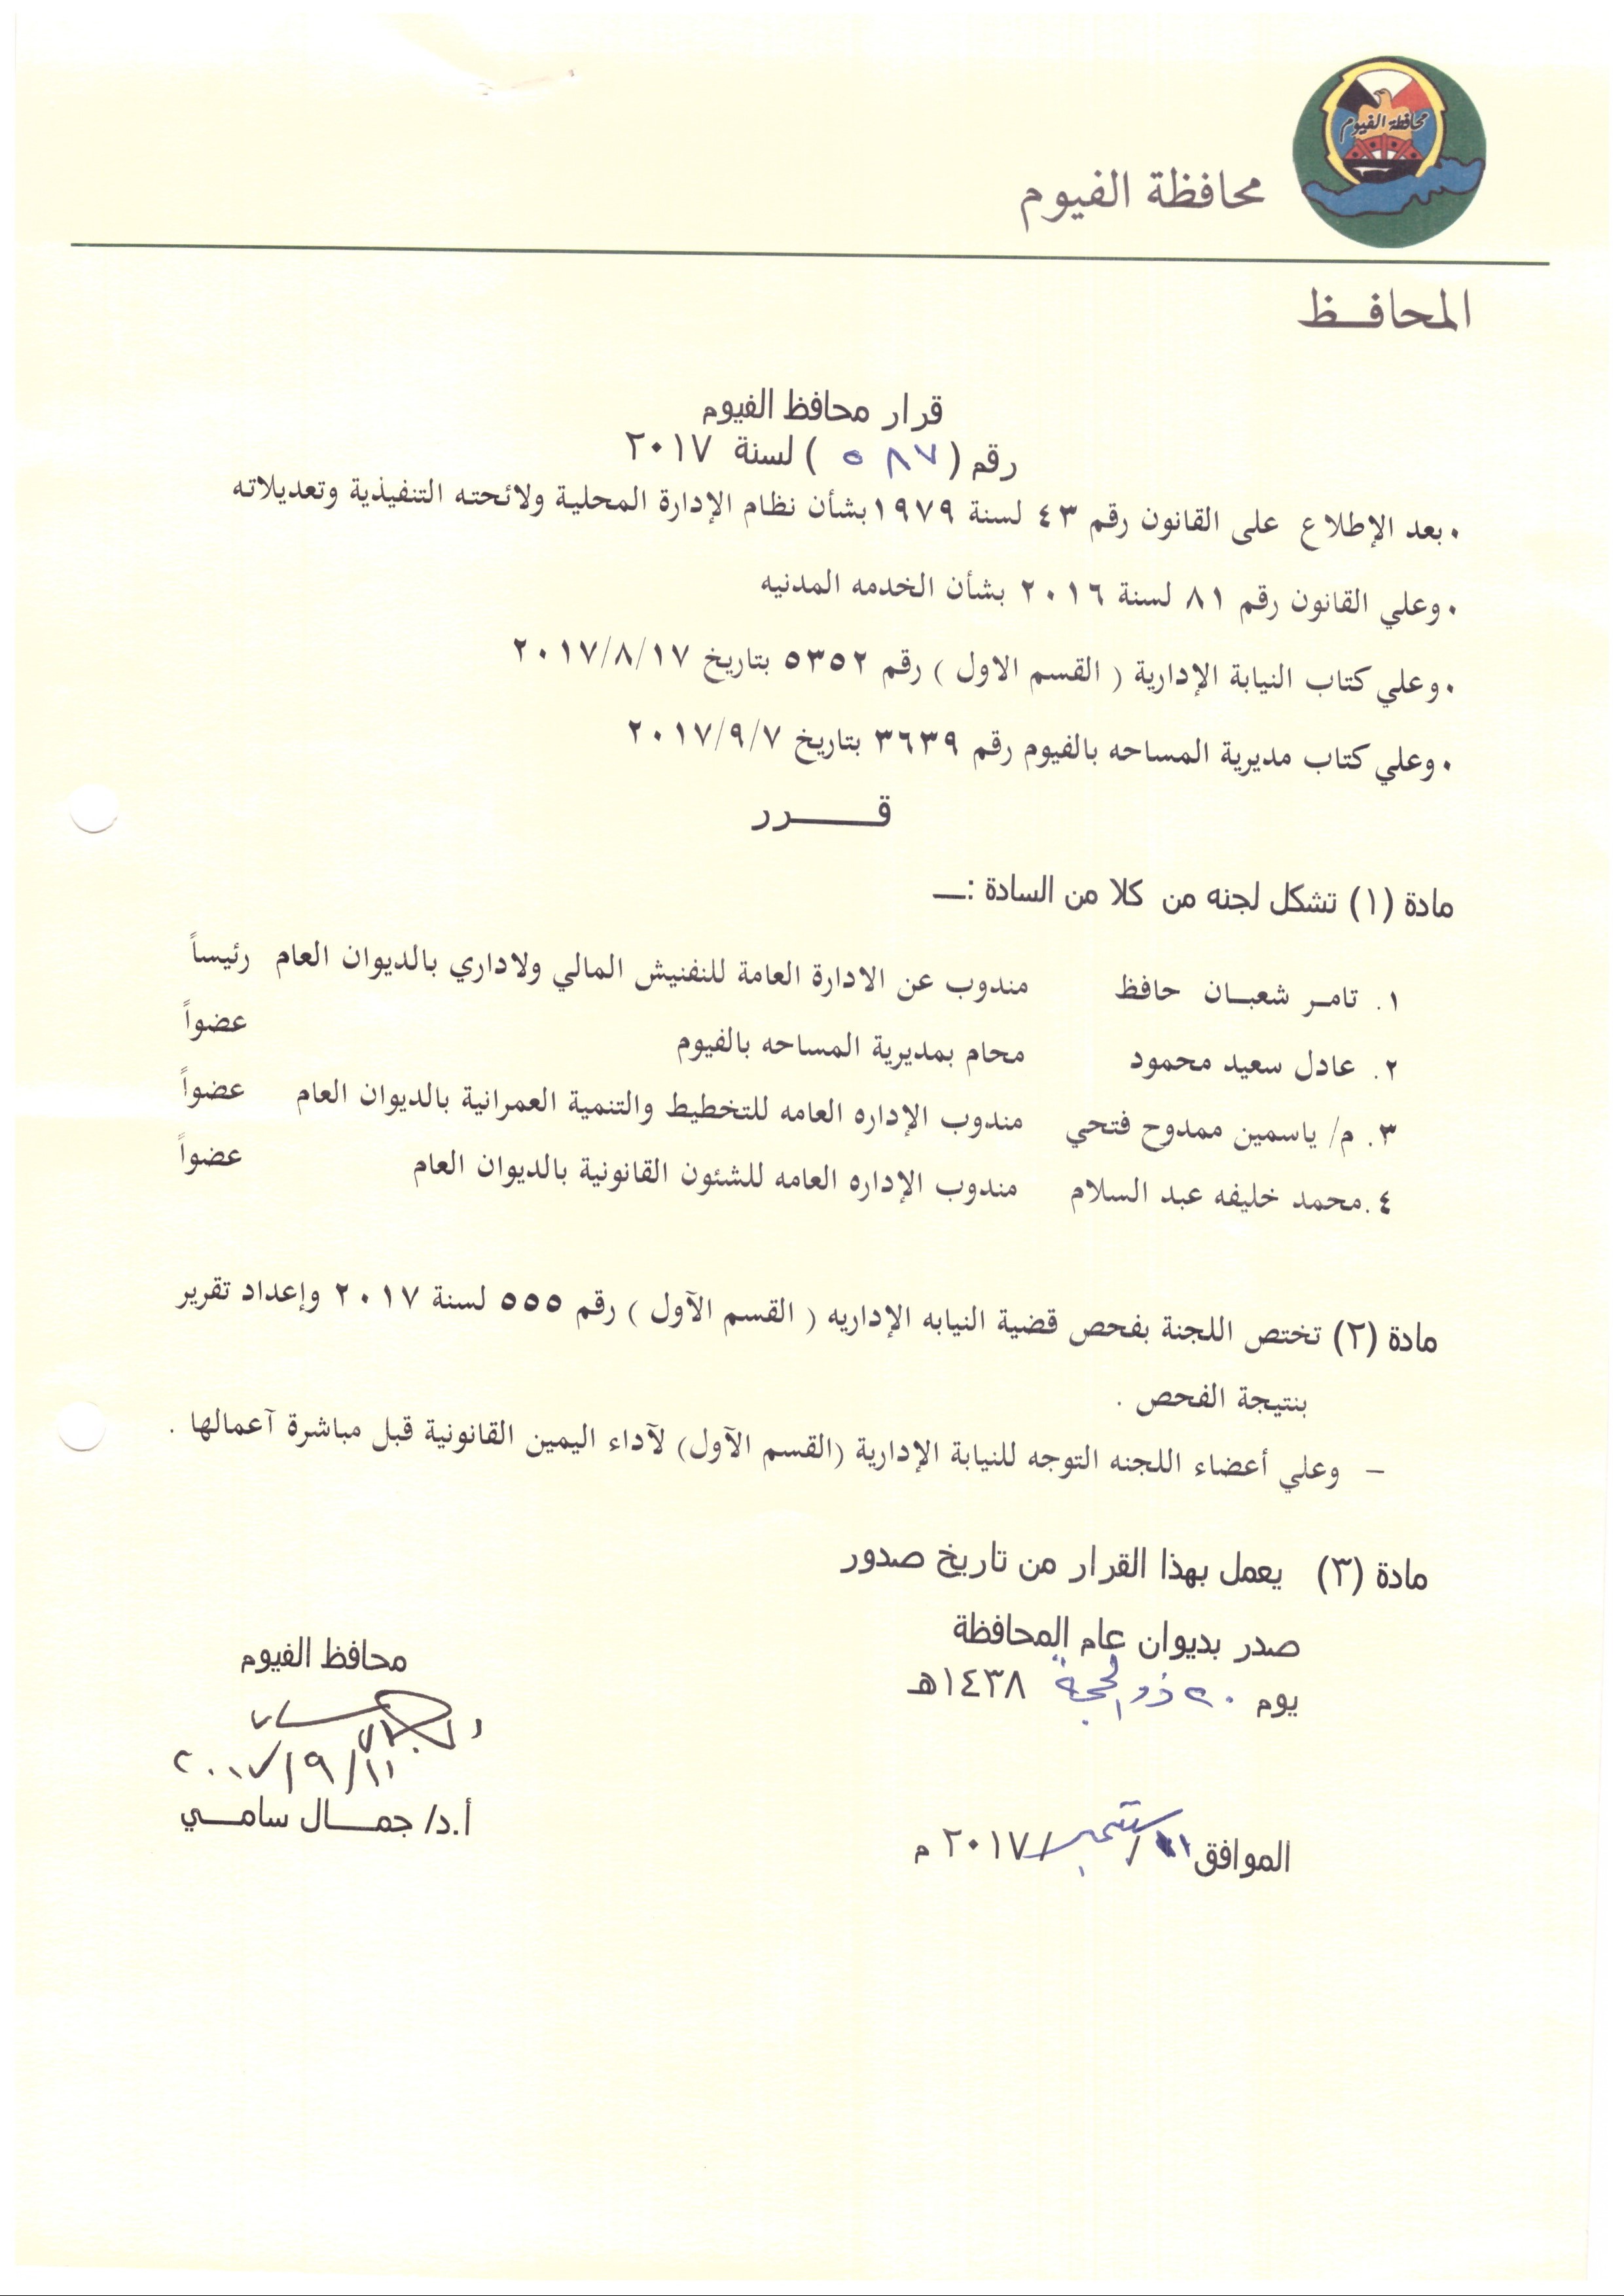 محافظة الفيوم
محافظة الفيوم
المحافـــظ
قرار محافظ الفيوم
رقم ( ٥٨٧ ) لسنة ٢٠١٧
• بعد الإطلاع على القانون رقم ٤٣ لسنة ١٩٧٩ بشأن نظام الإدارة المحلية ولائحته التنفيذية وتعديلاته
• وعلي القانون رقم ٨١ لسنة ٢٠١٦ بشأن الخدمه المدنيه
• وعلي كتاب النيابة الإدارية ( القسم الاول ) رقم ٥٣٥٢ بتاريخ ٢٠١٧/٨/١٧
• وعلي كتاب مديرية المساحه بالفيوم رقم ٣٦٣٩ بتاريخ ٢٠١٧/٩/٧
قـــــــرر
مادة (١) تشكل لجنه من كلا من السادة :ــ
١. تامـر شعبـان حافظ مندوب عن الادارة العامة للنفنيش المالي ولاداري بالديوان العام رئيساً
٢. عادل سعيد محمود محام بمديرية المساحه بالفيوم عضواً
٣. م/ ياسمين ممدوح فتحي مندوب الإداره العامه للتخطيط والتنمية العمرانية بالديوان العام عضواً
٤.محمد خليفه عبد السلام مندوب الإداره العامه للشئون القانونية بالديوان العام عضواً
مادة (٢) تختص اللجنة بفحص قضية النيابه الإداريه ( القسم الآول ) رقم ٥٥٥ لسنة ٢٠١٧ وإعداد تقرير
بنتيجة الفحص .
– وعلي أعضاء اللجنه التوجه للنيابة الإدارية (القسم الآول) لآداء اليمين القانونية قبل مباشرة آعمالها .
مادة (٣) يعمل بهذا القرار من تاريخ صدور
صدر بديوان عام المحافظة
يوم ٢٠ ذو الحجة ١٤٣٨هـ
الموافق ١١/ سبتمبر/ ٢٠١٧ م
محافظ الفيوم
٢٠١٧/٩/١١
أ.د/ جمـــال سامـــي